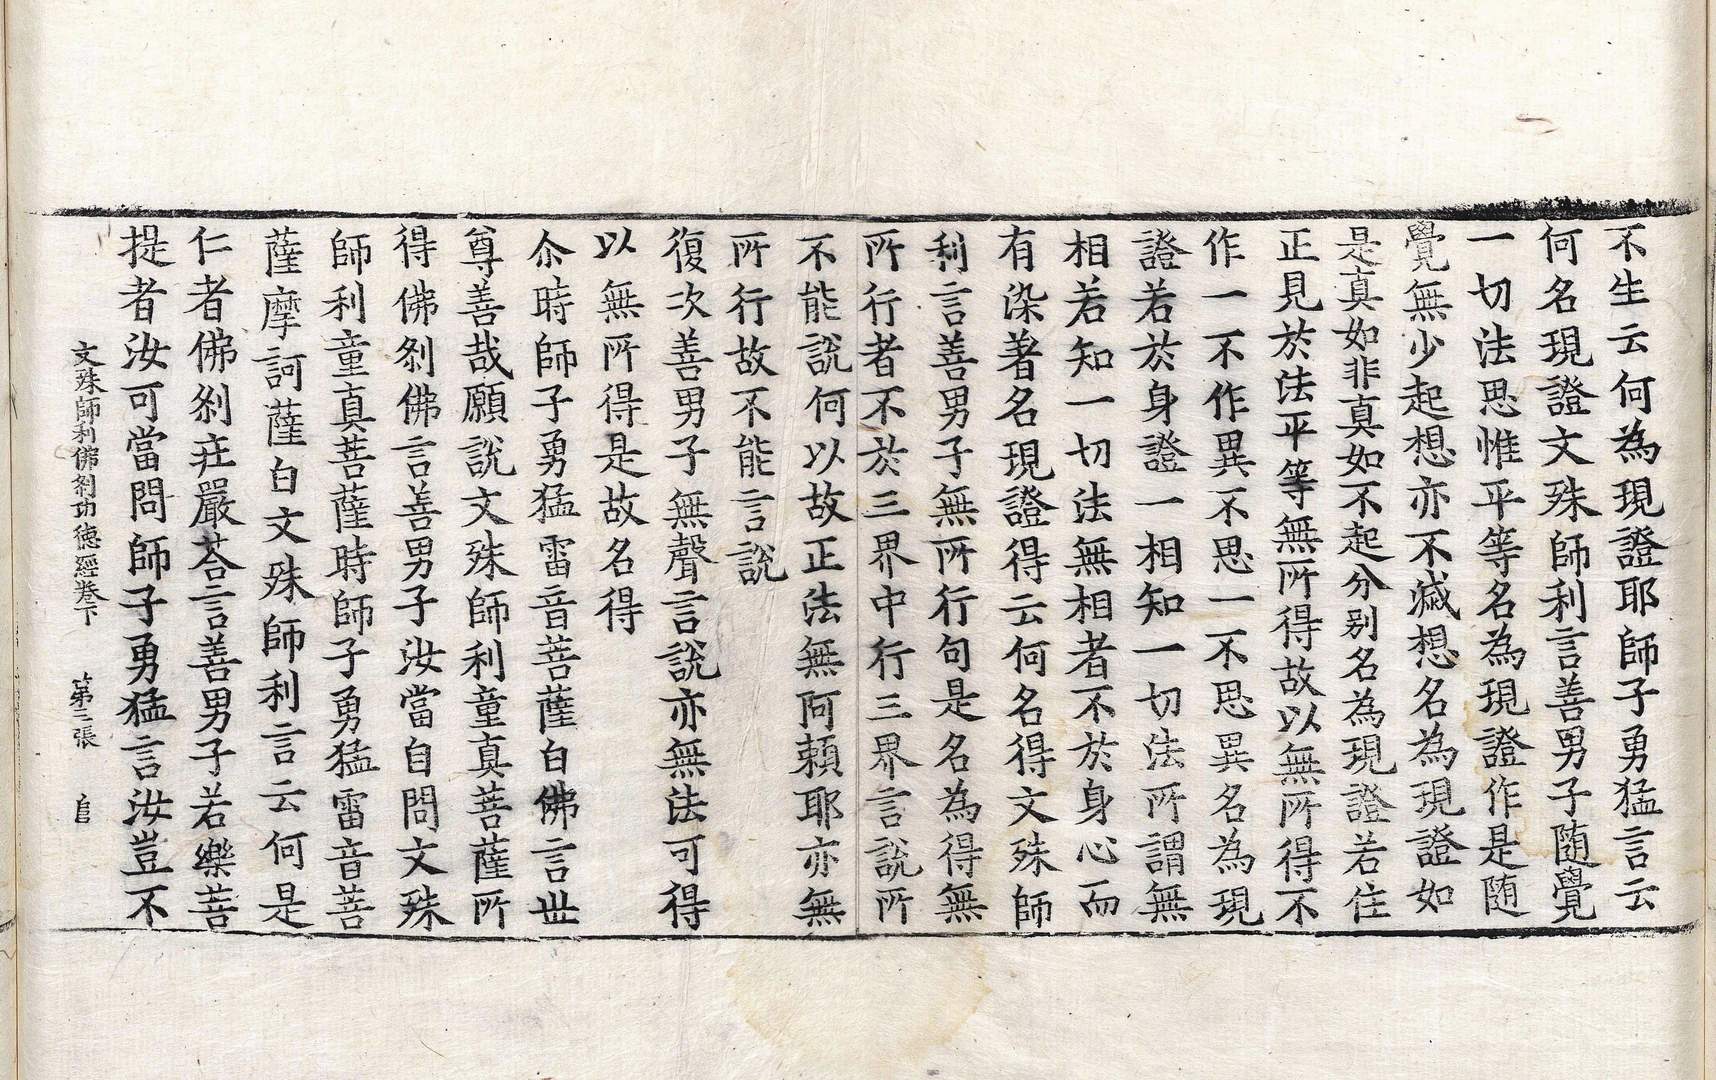 不生云何為現證耶師子勇猛言云
何名現證文殊師利言善男子随覺
一切法思惟平等名為現證作是随
覺無少起想亦不滅想名為現證如
是真如非真如不起分别名為現證若住
正見於法平等無所得故以無所得不
作一不作異不思一不思異名為現
證若於身證一相知一切法所謂無
相若知一切法無相者不於身心而
有染著名現證得云何名得文殊師
利言善男子無所行句是名為得無
所行者不於三界中行三界言說所
不能說何以故正法無阿賴耶亦無
所行故不能言說
復次善男子無聲言說亦無法可得
以無所得是故名得
尒時師子勇猛雷音菩薩白佛言世
尊善哉願說文殊師利童真菩薩所
得佛剎佛言善男子汝當自問文殊
師利童真菩薩時師子勇猛雷音菩
薩摩訶薩白文殊師利言云何是
仁者佛剎莊嚴荅言善男子若樂菩
提者汝可當問師子勇猛言汝豈不
文殊師利佛剎功德經卷下 第三張 自